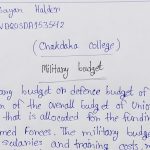 Sayan Halder
(Chakdaha college)
Military budget
ary budget or defence budget of
n of the overall budget of Union
that is allocated for the funding
med Forces. The military budge
salaries and training costs,